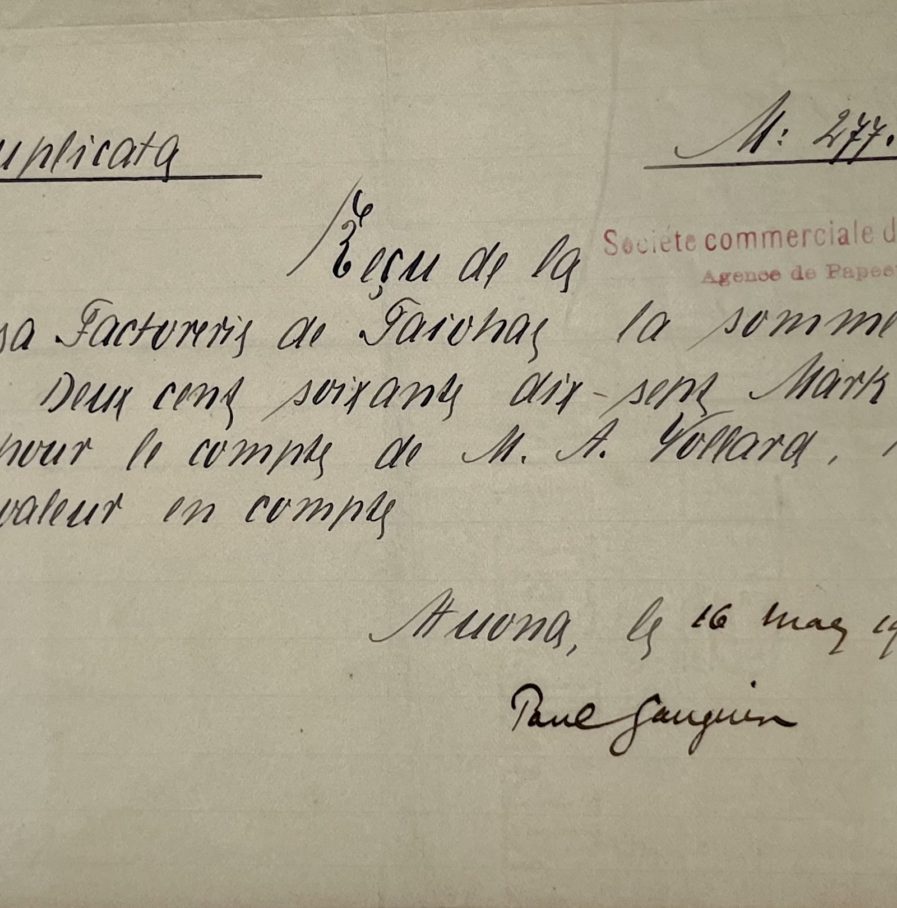 uplicata
M: 277.
Reçu de la Societe commerciale d
Agence de Papee
sa Factorerie de Taiohae la somme
Deux cent soixante dix-sept Mark
pour le compte de M. A. Vollard,
valeur en compte
Atuona, le 16 mai 19
Paul Gauguin